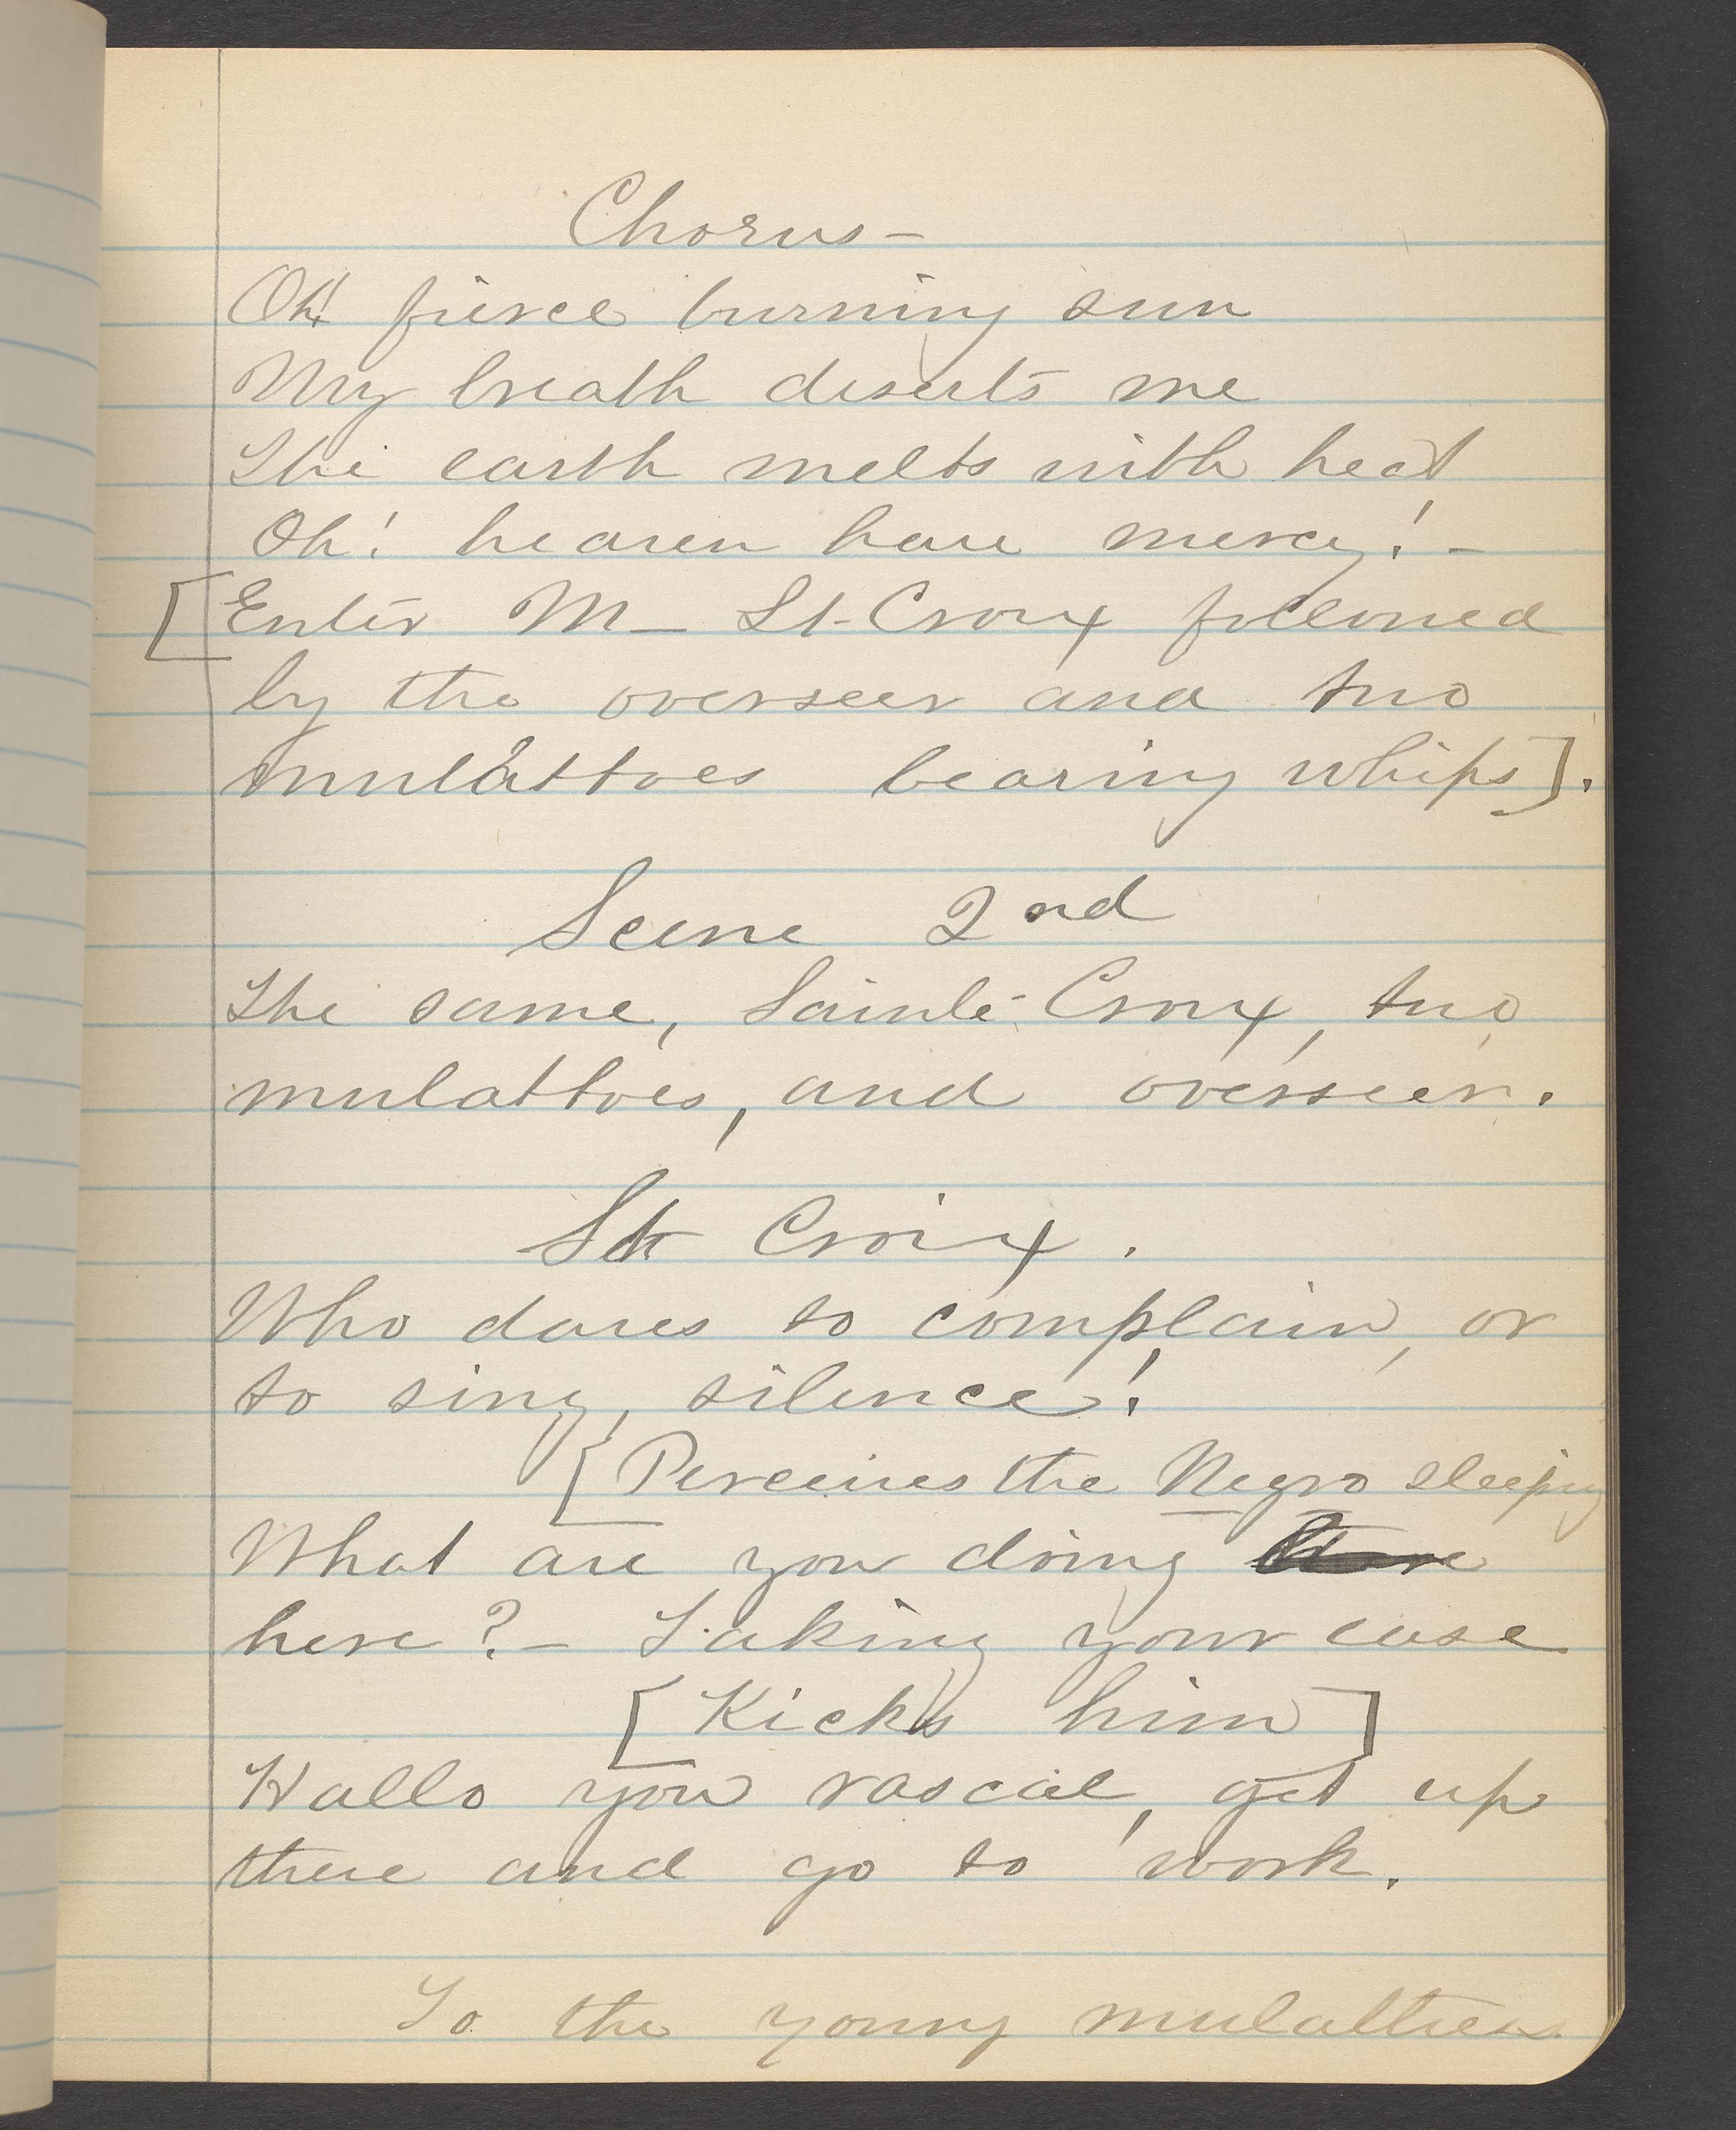 Chorus –
Oh! fierce burning sun
My breath deserts me
The earth melts with heat
Oh! heaven have mercy! –
[Enter M– St-Croix followed
by the overseer and two
mulattoes bearing whips].
Scene 2nd
The same, Sainte-Croix, two
mulattoes, and overseer.
St Croix.
Who dares to complain, or
to sing, silence!
[Perceives the Negro sleeping
What are you doing
here? – Taking your ease
[Kicks him]
Hallo you rascal, get up
there and go to work.
To the young mulattress